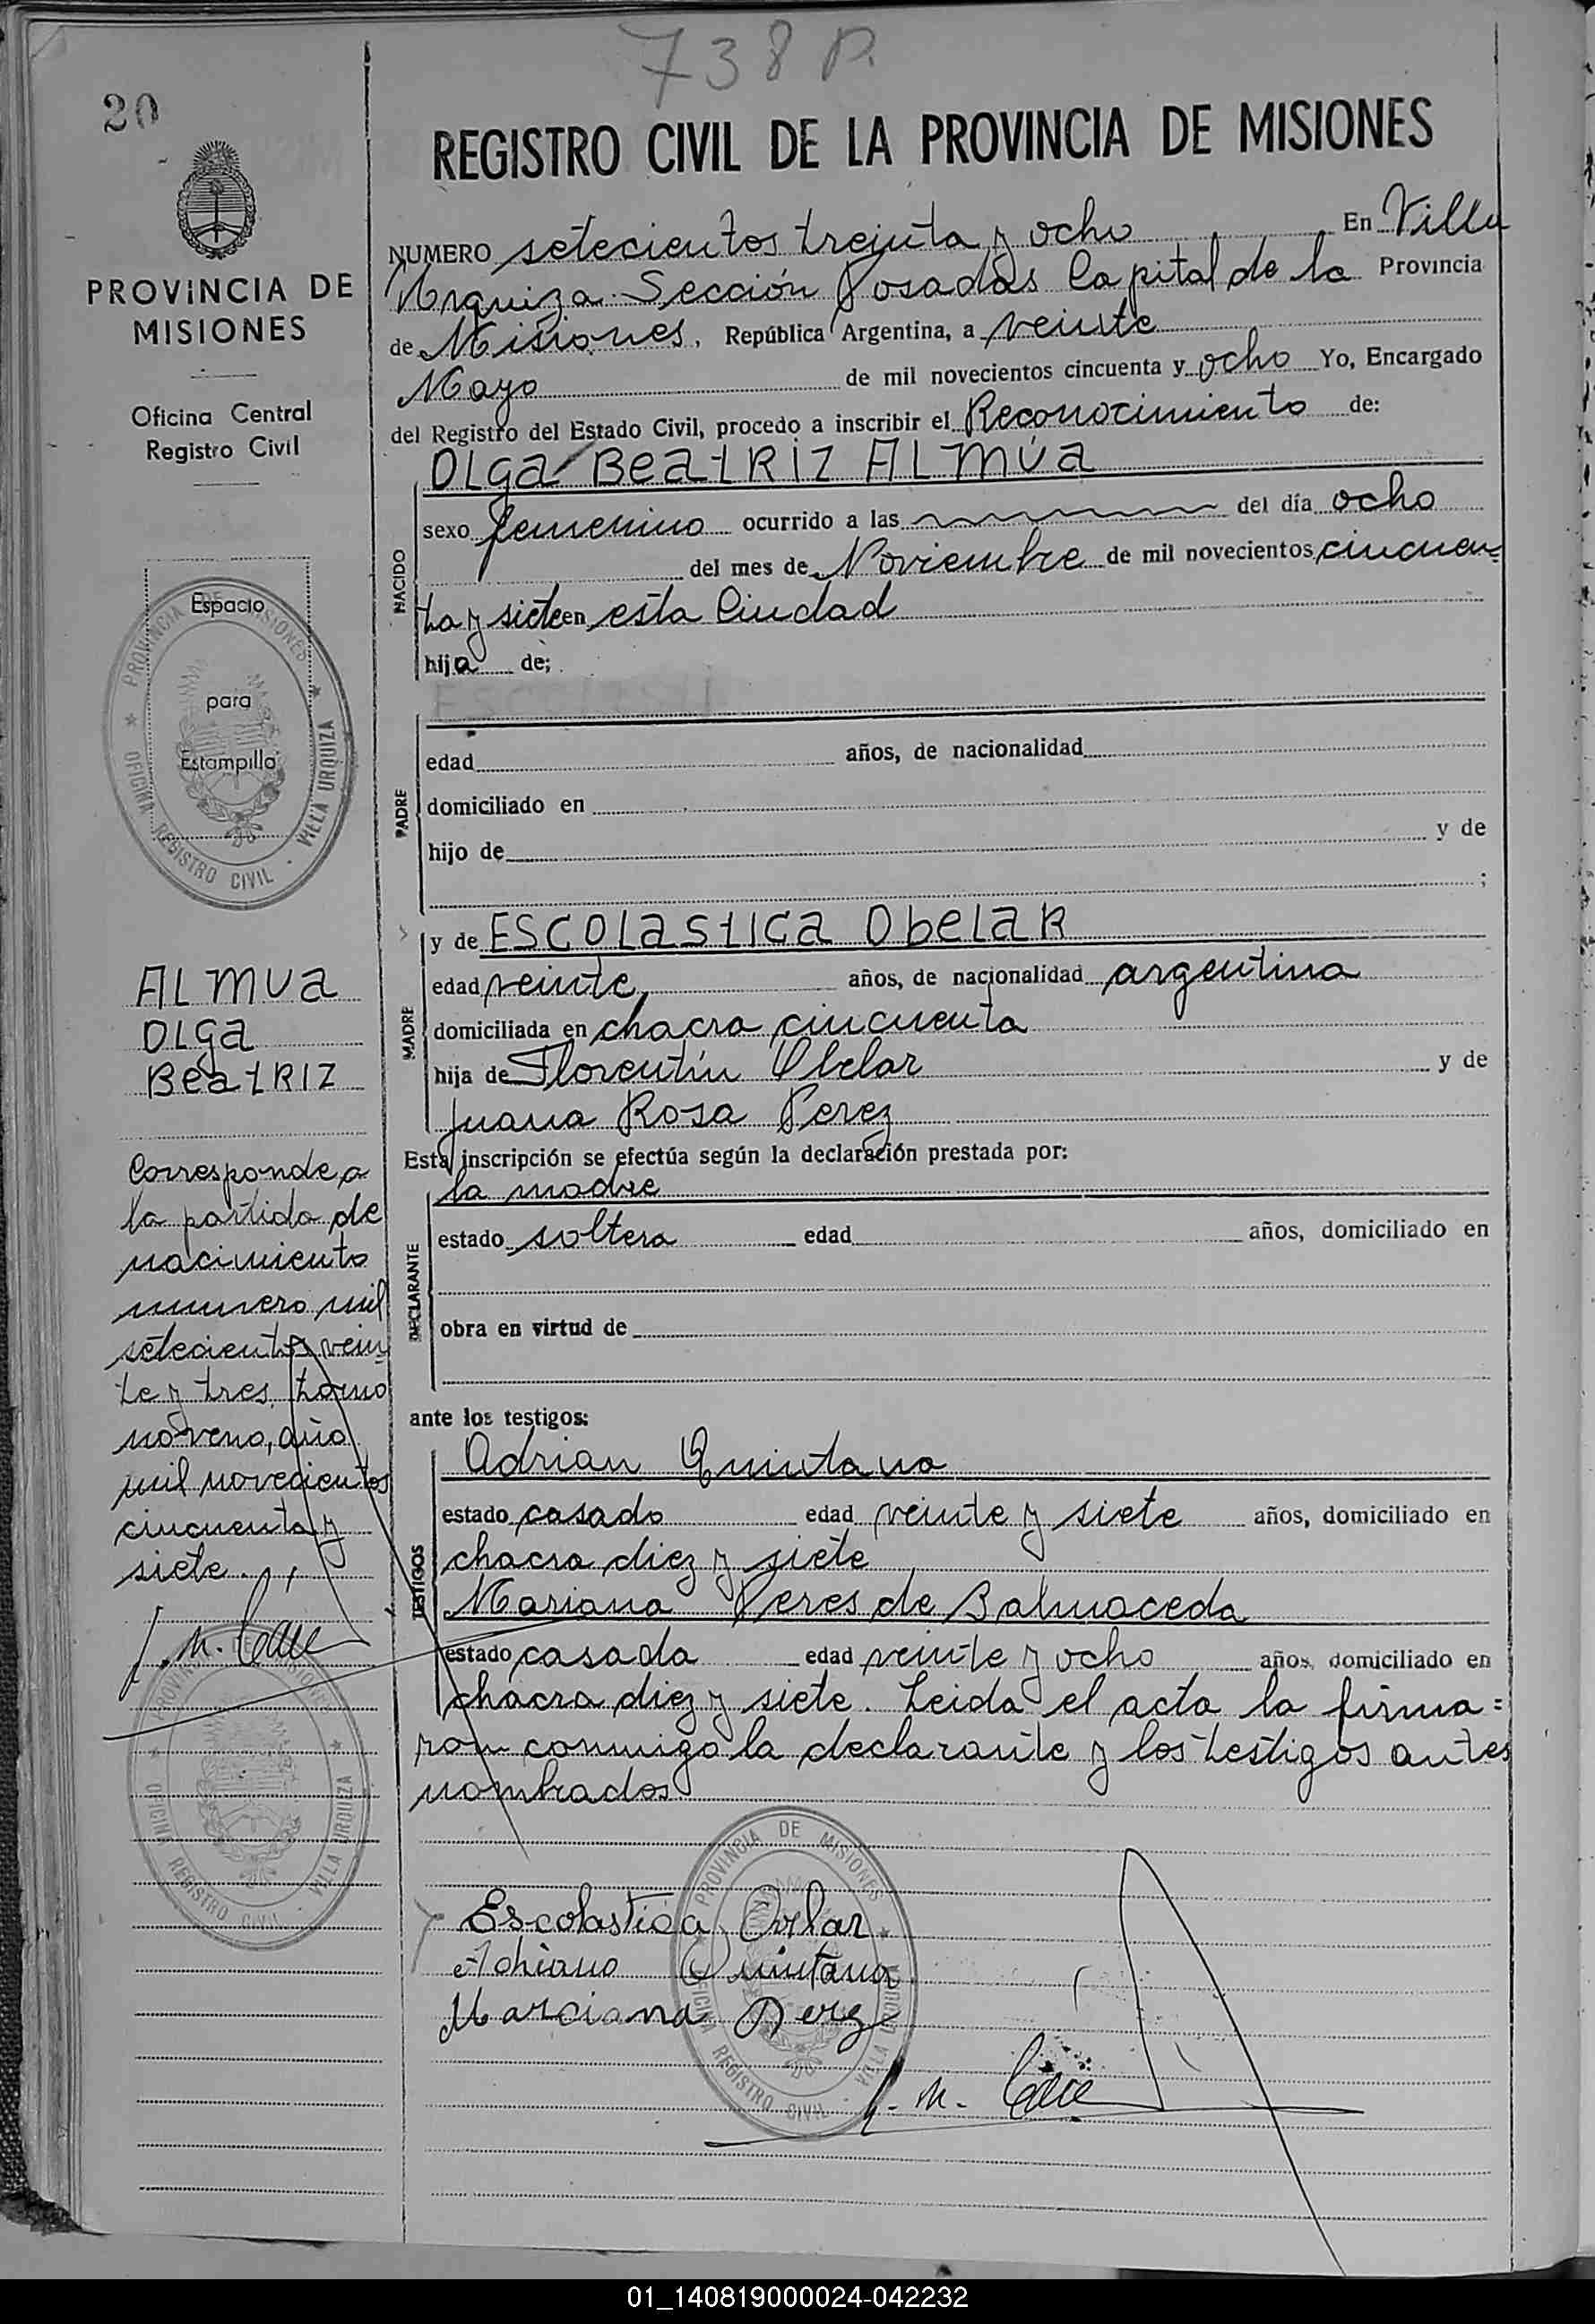 738 P.
20
REGISTRO CIVIL DE LA PROVINCIA DE MISIONES
NUMERO setecientos treinta y ocho En Villa
Urquiza Sección Posadas Capital de la Provincia
de Misiones, República Argentina, a veinte
Mayo de mil novecientos cincuenta y ocho Yo, Encargado
del Registro del Estado Civil, procedo a inscribir el Reconocimiento de:
OLga BeatRiz ALmúa
NACIDO
sexo femenino ocurrido a las del día ocho
del mes de Noviembre de mil novecientos cincuen=
ta y siete en esta Ciudad
hija de;
PADRE
edad años, de nacionalidad
domiciliado en
hijo de y de
;
MADRE
y de ESCOLastica ObelaR
edad veinte años, de nacionalidad argentina
domiciliada en chacra cincuenta
hija de Florentín Obelar y de
Juana Rosa Perez
Esta inscripción se efectúa según la declaración prestada por:
la madre
DECLARANTE
estado soltera edad años, domiciliado en
obra en virtud de
ante los testigos:
TESTIGOS
Adrian Quintana
estado casado edad veinte y siete años, domiciliado en
chacra diez y siete
Mariana Peres de Balmaceda
estado casada edad veinte y ocho años, domiciliado en
chacra diez y siete. Leida el acta la firma=
ron conmigo la declarante y los testigos antes
nombrados
Escolastica Ovelar
Adriano Quintana
Marciana Perez
PROVINCIA DE MISIONES
OFICINA REGISTRO CIVIL - VILLA URQUIZA
PROVINCIA DE
MISIONES
Oficina Central
Registro Civil
Espacio
para
Estampilla
PROVINCIA DE MISIONES
OFICINA REGISTRO CIVIL - VILLA URQUIZA
ALmua
OLga
BeatRiz
Corresponde a
la partida de
nacimiento
numero mil
setecientos vein
te y tres, tomo
noveno, año
mil novecientos
cincuenta y
siete.
PROVINCIA DE MISIONES
OFICINA REGISTRO CIVIL - VILLA URQUIZA
01_140819000024-042232